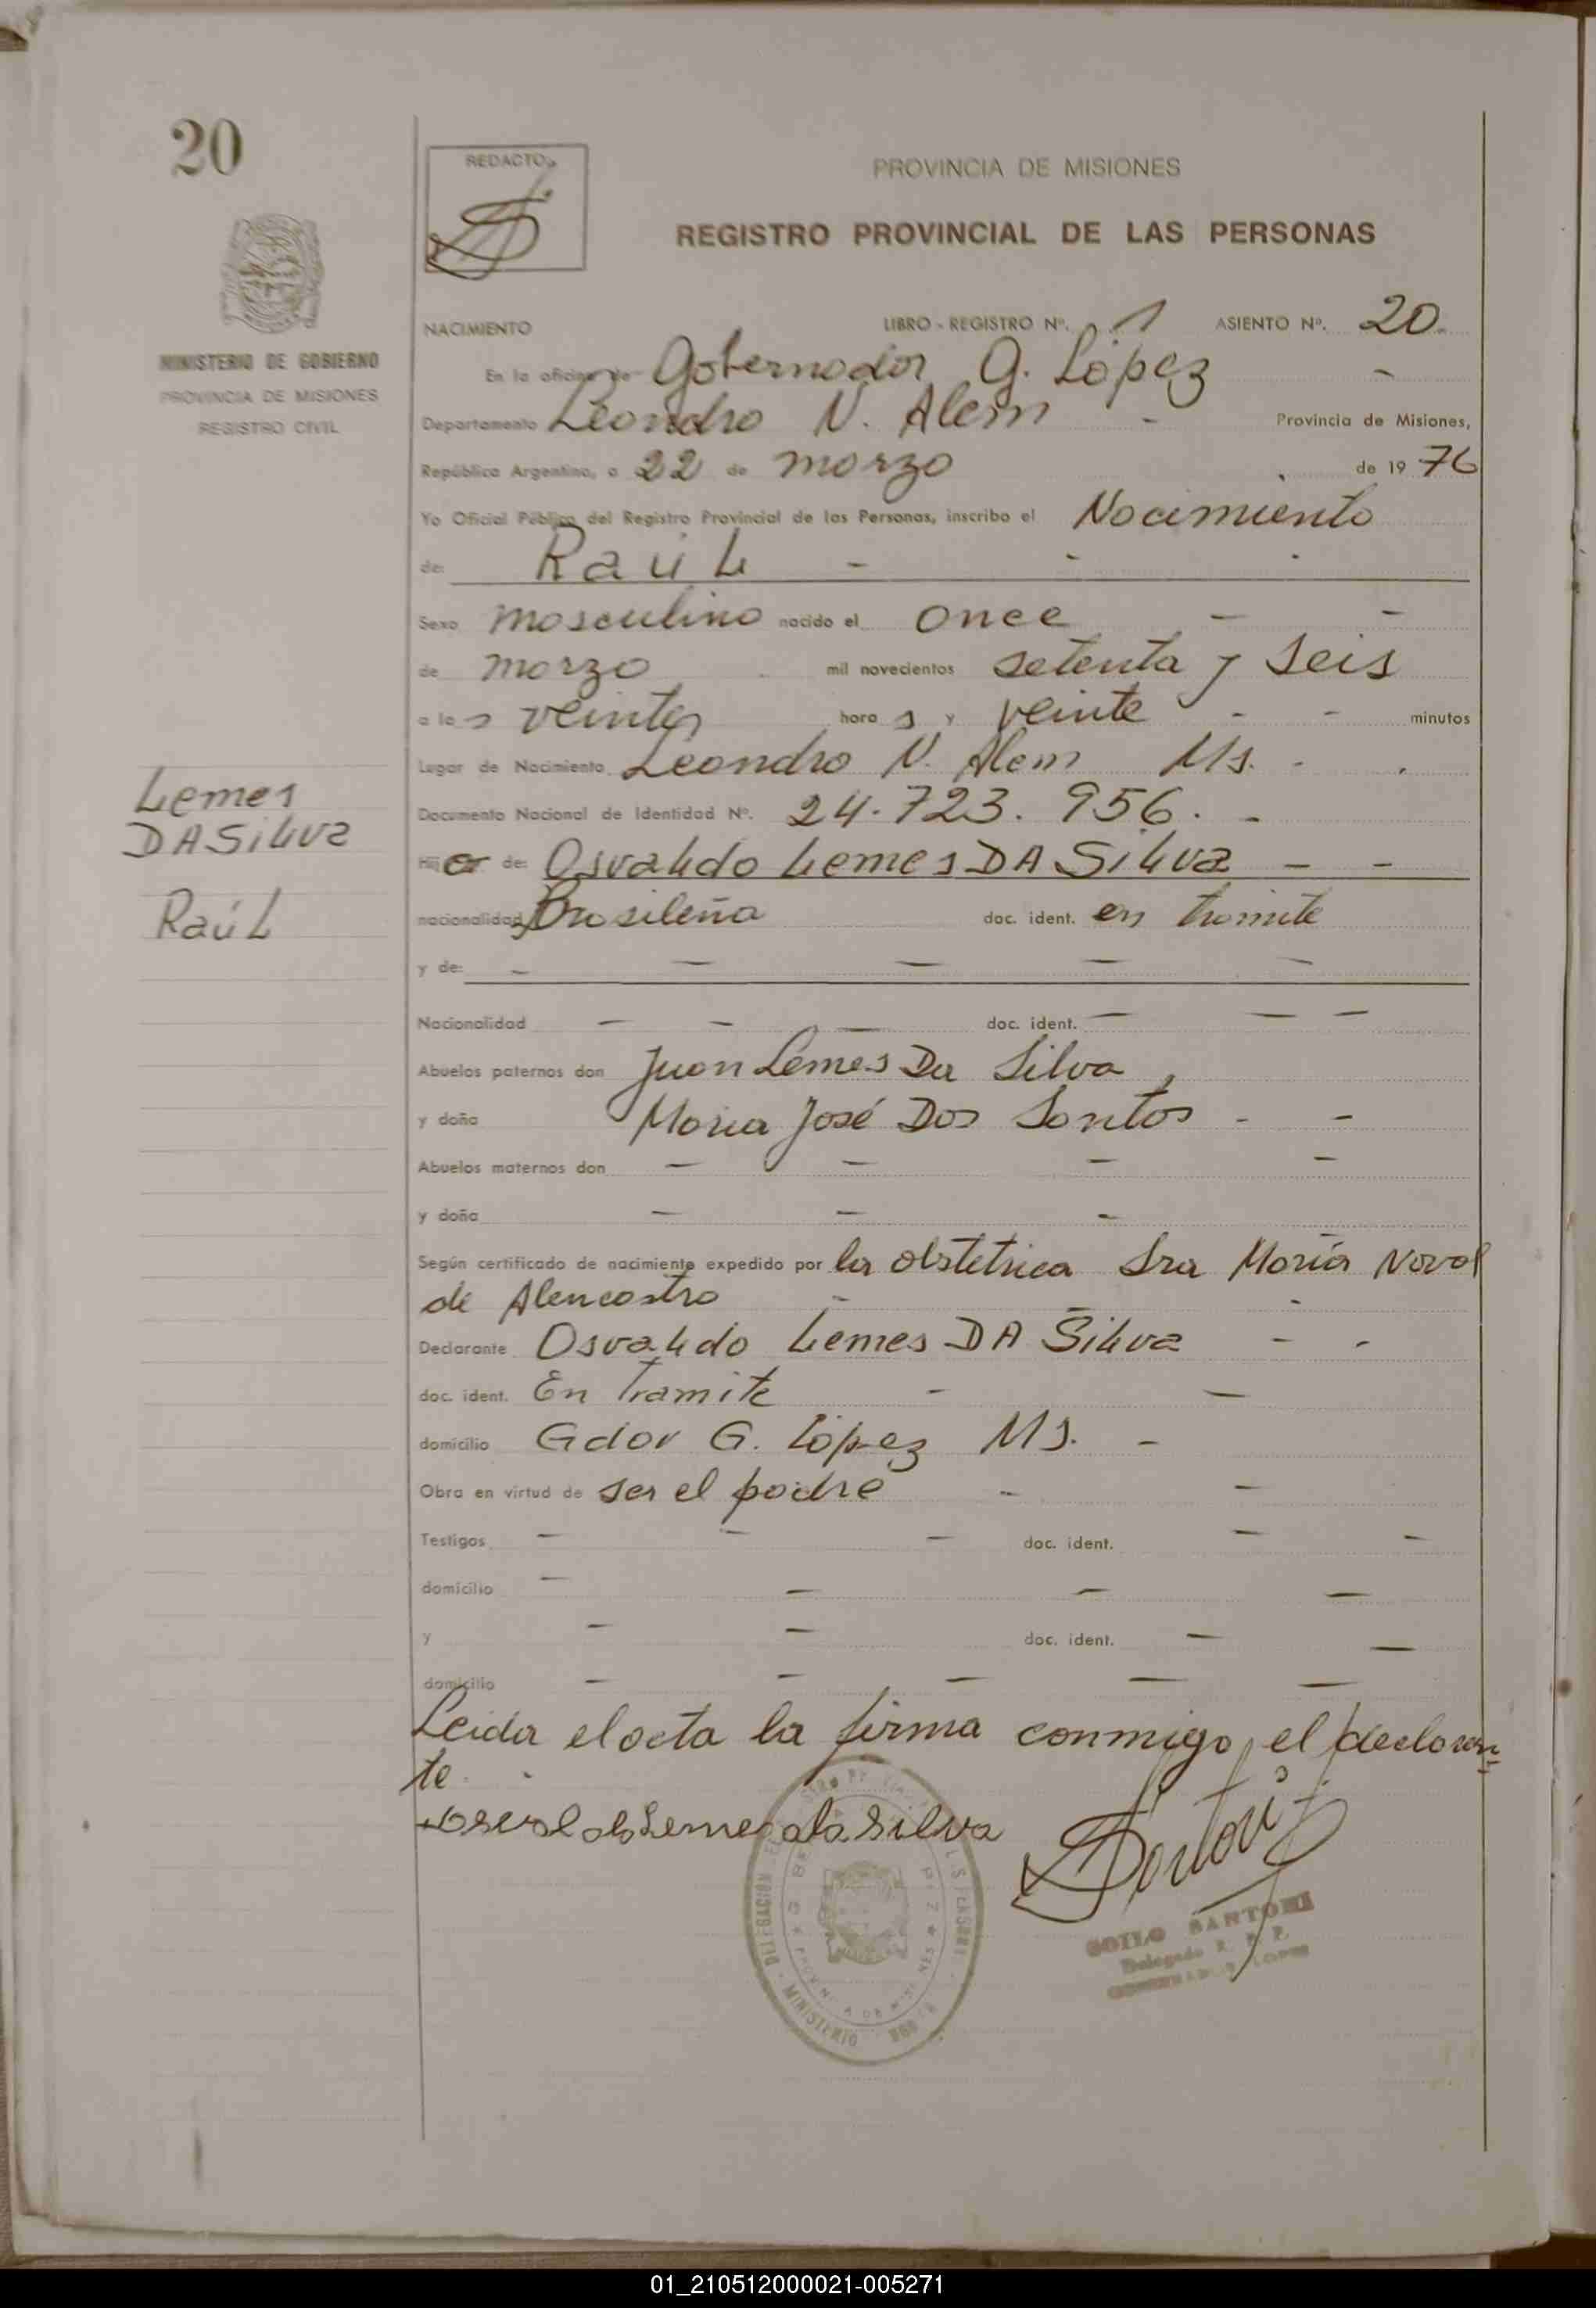 20
REDACTO
PROVINCIA DE MISIONES
REGISTRO PROVINCIAL DE LAS PERSONAS
MINISTERIO DE GOBIERNO
PROVINCIA DE MISIONES
REGISTRO CIVIL
NACIMIENTO LIBRO - REGISTRO Nº. 1 ASIENTO Nº. 20
En la oficina de Gobernador G. López -
Departamento Leandro N. Alem - Provincia de Misiones,
República Argentina, a 22 de marzo de 1976
Yo Oficial Público del Registro Provincial de las Personas, inscribo el Nacimiento
de: Raúl - - -
Sexo masculino nacido el once - -
de marzo mil novecientos setenta y seis
a las veinte horas y veinte - - minutos
Lugar de Nacimiento Leandro N. Alem Ms. -
Documento Nacional de Identidad Nº. 24.723.956. -
Lemes
DA Silva
Raúl
Hijo de: Osvaldo Lemes DA Silva - -
nacionalidad Brasileña doc. ident. en tramite
y de: - - - - -
Nacionalidad - - - doc. ident. - - -
Abuelos paternos don Juan Lemes Da Silva
y doña Maria José Dos Santos - -
Abuelos maternos don - - - -
y doña - - -
Según certificado de nacimiento expedido por la obstetrica Sra Maria Noval
de Alencastro - - -
Declarante Osvaldo Lemes DA Silva - -
doc. ident. En Tramite - -
domicilio Gdor G. López Ms. -
Obra en virtud de ser el padre - -
Testigos - - - doc. ident. - -
domicilio - - - -
y - - doc. ident. - -
domicilio - - - - -
Leida el acta la firma conmigo, el declaran=
te. -
Osvaldo Lemes da Silva
Santoni
ZOILO SANTONI
Delegado R. P. P.
GOBERNADOR LOPEZ
01_210512000021-005271